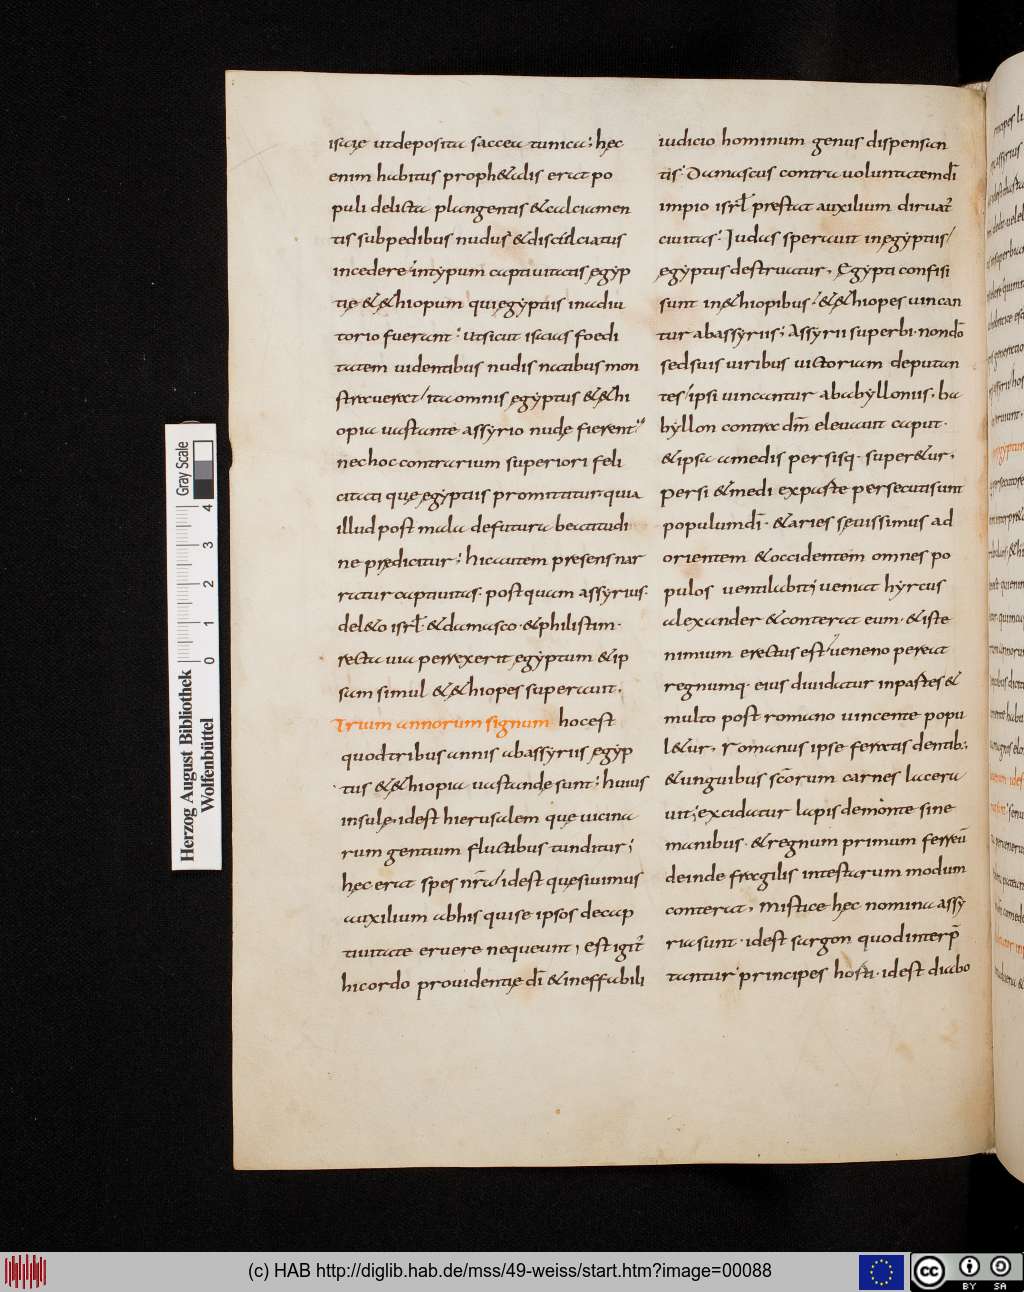 isaię utdeposita saccea tunica; hęc
enim habitus proph&adis erat po
puli delicta plangentis &calciamen
tis subpedibus nudus &discalciatus
incedere intypum captiuitatis ęgyp
tię & &hiopum qui ęgyptiis inadiu
torio fuerant; ut sicut isaias foedi
tatem uidentibus nudis natibus mon
strauerat ita omnis ęgyptus & &hi
opia uastante assyrio nudę fierent;
nec hoc contrarium superiori feli
citati quę ęgyptiis promittitur quia
illud post mala defutura beatitudi
ne prędicitur; hic autem presens nar
ratur captiuitas· postquam assyrius·
del&o isrl̄ &damasco· &philistim·
recta uia perrexerit ęgyptum &ip
sam simul & &hiopes superauit.
Trium annorum signum hocest
quod tribus annis abassyriis ęgyp
tus & &hiopia uastandę sunt; huius
insulę· idest hierusalem quę uicina
rum gentium fluctibus tunditur;
hęc erat spes nr̄a idest quęsiuimus
auxilium abhis qui se ipsos decap
tiuitate eruere nequeunt, est igit̄
hic ordo prouidentię dī &ineffabili
iudicio hominum genus dispensan
tis· Damascus contra uoluntatem dī
impio isrl̄ prestat auxilium diruat̄
ciuitas· Judas sperauit in ęgyptiis
ęgyptus destruatur. Ęgypti confisi
sunt in &hiopibus· & &hiopes uincan
tur abassyriis; Assyrii superbi· non dō
sed suis uiribus uictoriam deputan
tes ipsi uincantur ababylloniis. ba
byllon contra dm̄ eleuauit caput·
&ipsa amedis persisq· super&ur.
persi &medi exparte persecuti sunt
populum dī· &aries sęuissimus ad
orientem &occidentem omnes po
pulos uentilabit; ueniat hyrcus
alexander &conterat eum· &iste
nimium erectus est ueneno pereat
regnumq· eius diuidatur inpartes &
multo post romano uincente popu
l&ur. romanus ipse ferratis dentib;
&unguibus sc̄orum carnes lacera
uit; excidatur lapis demonte sine
manibus· &regnum primum ferreū
deinde fragilis in testarum modum
conterat. mistice hęc nomina assy
ria sunt· idest sargon quod interp̄
tantur principes horti· idest diabo
Herzog August Bibliothek
Wolfenbüttel
Gray Scale
0 1 2 3 4
(c) HAB http://diglib.hab.de/mss/49-weiss/start.htm?image=00088
cc BY SA